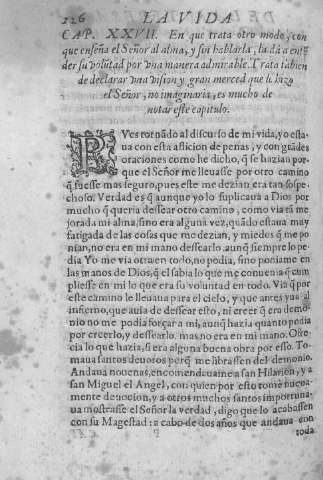 226 LA VIDA
CAP. XXVII. En que trata otro modo, con
que enseña el Señor al alma, y sin hablarla, la dà a entẽ
der su volũtad por vna manera admirable. Trata tãbien
de declarar vna vision, y gran merced que la hizo
el Señor, no imaginaria, es mucho de
notar este capitulo.
PVes tornãdo al discurso de mi vida, yo esta-
ua con esta afliccion de penas, y con grãdes
oraciones como he dicho, q̃ se hazian por-
que el Señor me lleuasse por otro camino
q̃ fuesse mas seguro, pues este me dezian era tan sospe-
choso. Verdad es q̃ aunque yo lo suplicaua a Dios por
mucho q̃ queria dessear otro camino, como via tã me
jorada mi alma, sino era alguna vez, quãdo estaua muy
fatigada de las cosas que me dezian, y miedos q̃ me po
nian, no era en mi mano dessearlo, aunq̃ siempre lo pe
dia. Yo me via otra en todo, no podia, sino poniame en
las manos de Dios, q̃ el sabia lo que me conuenia, q̃ cum
pliesse en mi lo que era su voluntad en todo. Via q̃ por
este camino le lleuaua para el cielo, y que antes yua al
infierno, que auia de dessear esto, ni creer q̃ era demo-
nio no me podia forçar a mi, aunq̃ hazia quanto podia
por creerlo, y dessearlo, mas no era en mi mano. Ofre
cia lo que hazia, si era alguna buena obra por esso. To-
maua santos deuotos porq̃ me librassen del demonio.
Andaua nouenas, encomendauame a san Hilarion, y a
san Miguel el Angel, con quien por esto tomè nueua-
mente deuocion, y a otros muchos santos importuna-
ua mostrasse el Señor la verdad, digo que lo acabassen
con su Magestad: a cabo de dos años que andaua con
toda